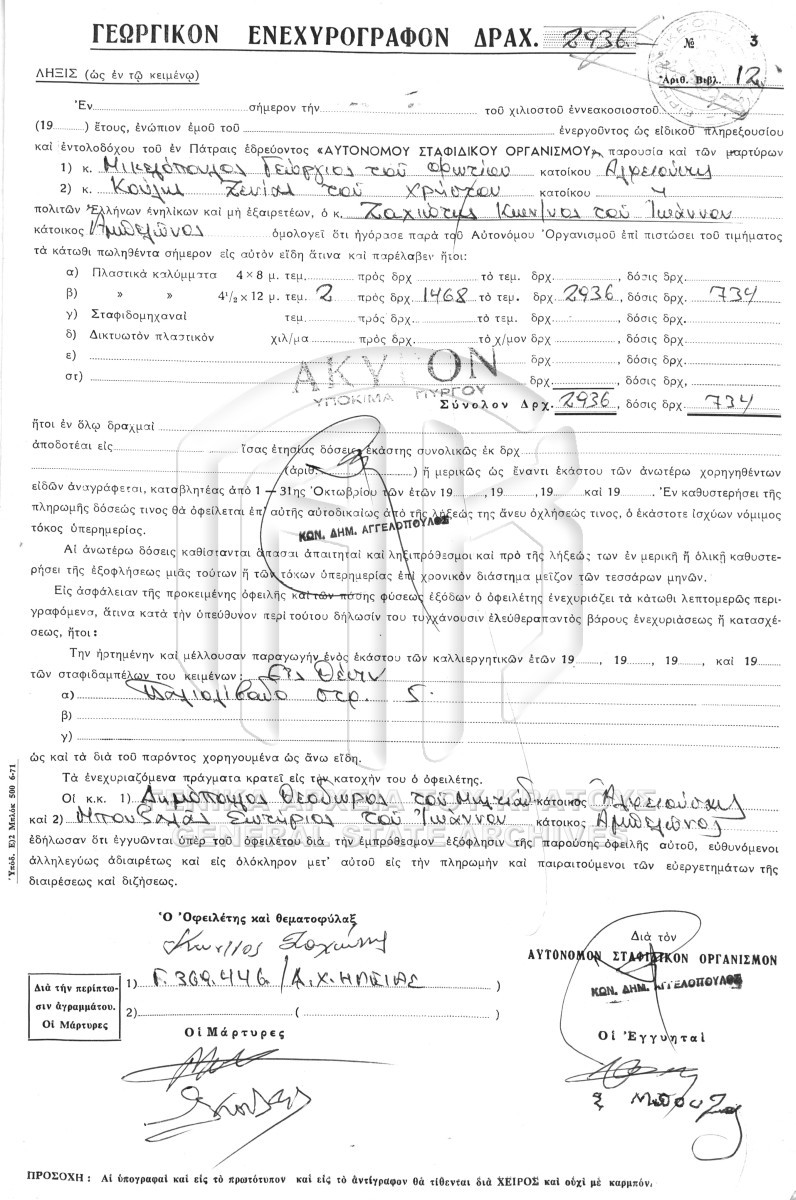 ΓΕΩΡΓΙΚΟΝ ΕΝΕΧΥΡΟΓΡΑΦΟΝ ΔΡΑΧ. 2936 № 3
ΛΗΞΙΣ (ὡς ἐν τῷ κειμένῳ) Ἀριθ. Βιβλ. 12
Ἐν σήμερον τὴν τοῦ χιλιοστοῦ ἐννεακοσιοστοῦ
(19 ) ἔτους, ἐνώπιον ἐμοῦ τοῦ ἐνεργοῦντος ὡς εἰδικοῦ πληρεξουσίου
καὶ ἐντολοδόχου τοῦ ἐν Πάτραις ἑδρεύοντος «ΑΥΤΟΝΟΜΟΥ ΣΤΑΦΙΔΙΚΟΥ ΟΡΓΑΝΙΣΜΟΥ», παρουσίᾳ καὶ τῶν μαρτύρων
1) κ. Μικελόπουλος Γεώργιος τοῦ Φωτίου κατοίκου Ἀλφειούσης
2) κ. τοῦ Χρήστου κατοίκου
πολιτῶν Ἑλλήνων ἐνηλίκων καὶ μὴ ἐξαιρετέων, ὁ κ. Ζαχιώτης Κων/νος τοῦ Ἰωάννου
κάτοικος Ἀμπελῶνος ὁμολογεῖ ὅτι ἠγόρασε παρὰ τοῦ Αὐτονόμου Ὀργανισμοῦ ἐπὶ πιστώσει τοῦ τιμήματος
τὰ κάτωθι πωληθέντα σήμερον εἰς αὐτὸν εἴδη ἅτινα καὶ παρέλαβεν ἤτοι:
α) Πλαστικὰ καλύμματα 4×8 μ. τεμ. πρὸς δρχ τὸ τεμ. δρχ. , δόσις δρχ.
β) » » 4½ × 12 μ. τεμ. 2 πρὸς δρχ 1468 τὸ τεμ. δρχ 2936 , δόσις δρχ. 734
γ) Σταφιδομηχαναὶ τεμ. πρὸς δρχ. τὸ τεμ. δρχ. , δόσις δρχ.
δ) Δικτυωτὸν πλαστικὸν χιλ/μα πρὸς δρχ. τὸ χ/μον δρχ. , δόσις δρχ.
ε) δρχ , δόσις δρχ.
στ) δρχ. , δόσις δρχ.
ΑΚΥΡΟΝ
ΥΠΟΚ/ΜΑ ΠΥΡΓΟΥ
Σύνολον Δρχ. 2936 , δόσις δρχ. 734
ἤτοι ἐν ὅλῳ δραχμαὶ
ἀποδοτέαι εἰς ἴσας ἐτησίας δόσεις ἑκάστης συνολικῶς ἐκ δρχ
(ἀριθ. ) ἢ μερικῶς ὡς ἔναντι ἑκάστου τῶν ἀνωτέρω χορηγηθέντων
εἰδῶν ἀναγράφεται, καταβλητέας ἀπὸ 1 – 31ης Ὀκτωβρίου τῶν ἐτῶν 19 , 19 , 19 καὶ 19 . Ἐν καθυστερήσει τῆς
πληρωμῆς δόσεώς τινος θὰ ὀφείλεται ἐπ' αὐτῆς αὐτοδικαίως ἀπὸ τῆς λήξεώς της ἄνευ ὀχλήσεώς τινος, ὁ ἑκάστοτε ἰσχύων νόμιμος
τόκος ὑπερημερίας.
ΚΩΝ. ΔΗΜ. ΑΓΓΕΛΟΠΟΥΛΟΣ
Αἱ ἀνωτέρω δόσεις καθίστανται ἅπασαι ἀπαιτηταὶ καὶ ληξιπρόθεσμοι καὶ πρὸ τῆς λήξεώς των ἐν μερικῇ ἢ ὁλικῇ καθυστε-
ρήσει τῆς ἐξοφλήσεως μιᾶς τούτων ἢ τῶν τόκων ὑπερημερίας ἐπὶ χρονικὸν διάστημα μεῖζον τῶν τεσσάρων μηνῶν.
Εἰς ἀσφάλειαν τῆς προκειμένης ὀφειλῆς καὶ τῶν πάσης φύσεως ἐξόδων ὁ ὀφειλέτης ἐνεχυριάζει τὰ κάτωθι λεπτομερῶς περι-
γραφόμενα, ἅτινα κατὰ τὴν ὑπεύθυνον περὶ τούτου δήλωσίν του τυγχάνουσιν ἐλεύθερα παντὸς βάρους ἐνεχυριάσεως ἢ κατασχέ-
σεως, ἤτοι:
Τὴν ἠρτημένην καὶ μέλλουσαν παραγωγὴν ἑνὸς ἑκάστου τῶν καλλιεργητικῶν ἐτῶν 19 , 19 , 19 , καὶ 19
τῶν σταφιδαμπέλων του κειμένων: εἰς θέσιν
α) Παλιολίβαδο στρ. 5.
β)
γ)
ὡς καὶ τὰ διὰ τοῦ παρόντος χορηγούμενα ὡς ἄνω εἴδη.
Τὰ ἐνεχυριαζόμενα πράγματα κρατεῖ εἰς τὴν κατοχήν του ὁ ὀφειλέτης.
ΓΕΝΙΚΑ ΑΡΧΕΙΑ ΤΟΥ ΚΡΑΤΟΥΣ
GENERAL STATE ARCHIVES
Οἱ κ.κ. 1) Δημόπουλος Θεόδωρος τοῦ Μιλτιάδ κάτοικος Ἀλφειούσης
καὶ 2) Μπουζαλᾶς Σωτήριος τοῦ Ἰωάννου κάτοικος Ἀμπελῶνος
ἐδήλωσαν ὅτι ἐγγυῶνται ὑπὲρ τοῦ ὀφειλέτου διὰ τὴν ἐμπρόθεσμον ἐξόφλησιν τῆς παρούσης ὀφειλῆς αὐτοῦ, εὐθυνόμενοι
ἀλληλεγύως ἀδιαιρέτως καὶ εἰς ὁλόκληρον μετ' αὐτοῦ εἰς τὴν πληρωμὴν καὶ παιραιτούμενοι τῶν εὐεργετημάτων τῆς
διαιρέσεως καὶ διζήσεως.
Ὑπόδ. Ε)2 Μπλὸκ 500 6-71
Ὁ Ὀφειλέτης καὶ θεματοφύλαξ
Κων/νος Ζαχιώτης
Διὰ τὸν
ΑΥΤΟΝΟΜΟΝ ΣΤΑΦΙΔΙΚΟΝ ΟΡΓΑΝΙΣΜΟΝ
ΚΩΝ. ΔΗΜ. ΑΓΓΕΛΟΠΟΥΛΟΣ
Διὰ τὴν περίπτω-
σιν ἀγραμμάτου.
Οἱ Μάρτυρες
1) Γ. 309.446 / Α.Χ. ΗΛΕΙΑΣ )
2) ( )
Οἱ Μάρτυρες
Οἱ Ἐγγυηταὶ
ΠΡΟΣΟΧΗ : Αἱ ὑπογραφαὶ καὶ εἰς τὸ πρωτότυπον καὶ εἰς τὸ ἀντίγραφον θὰ τίθενται διὰ ΧΕΙΡΟΣ καὶ οὐχὶ μὲ καρμπόν.